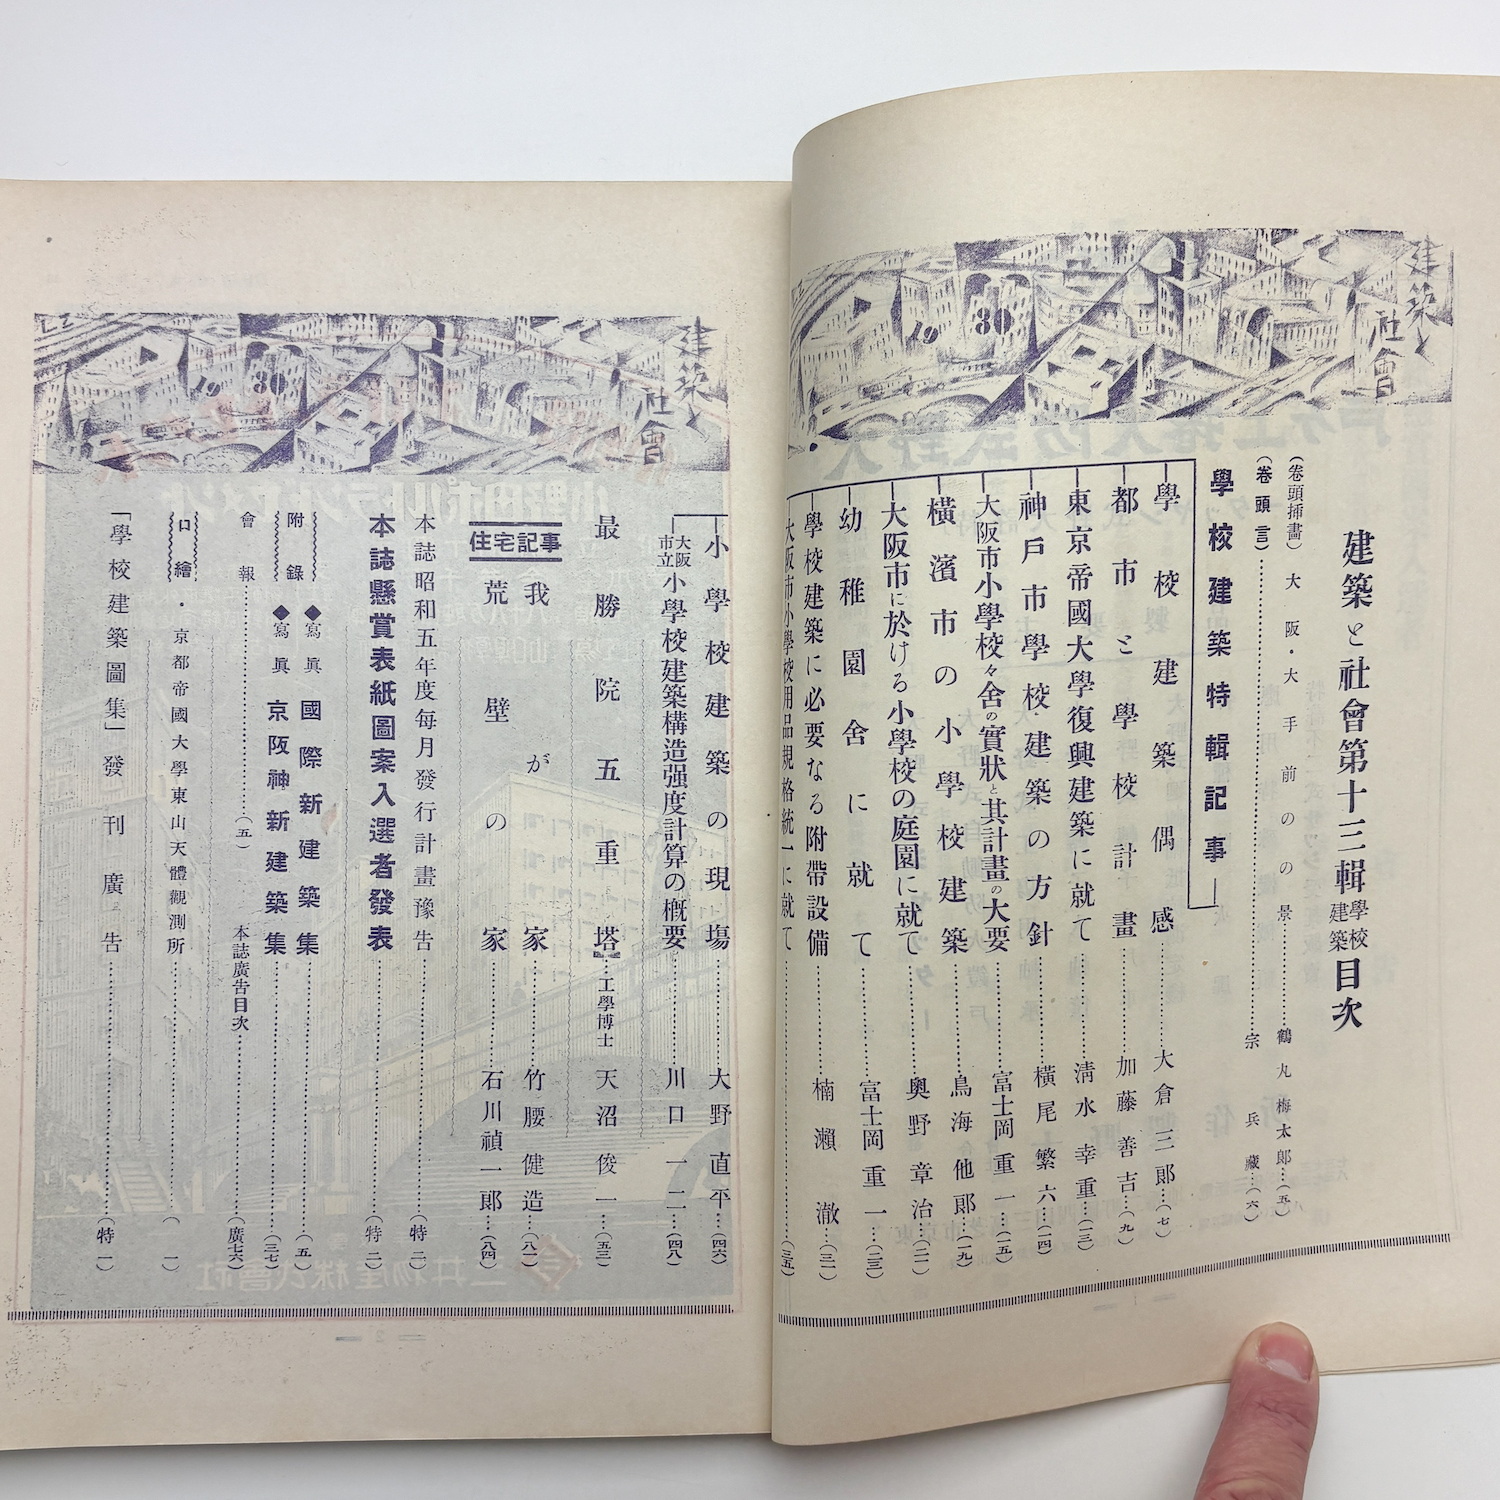 建築と社會
1930
建築と社會第十三輯 學校建築 目次
(卷頭揷畫) 大阪・大手前のの景 鶴丸梅太郎 (五)
(卷頭言) 宗兵藏 (六)
學校建築特輯記事
學校建築偶感 大倉三郎 (七)
都市と學校計畫 加藤善吉 (九)
東京帝國大學復興建築に就て 淸水幸重 (一三)
神戶市學校建築の方針 橫尾繁六 (一四)
大阪市小學校々舍の實狀と其計畫の大要 富士岡重一 (一五)
橫濱市の小學校建築 鳥海他郞 (一九)
大阪市に於ける小學校の庭園に就て 奧野章治 (二一)
幼稚園舍に就て 富士岡重一 (二三)
學校建築に必要なる附帶設備 楠瀨澈 (三一)
大阪市小學校用品規格統一に就て (三五)
建築と社會
1930
小學校建築の現場 大野直平 (四六)
大阪市立小學校建築構造强度計算の槪要 川口一二 (四八)
最勝院五重塔 工學博士 天沼俊一 (五三)
住宅記事
我が家 竹腰健造 (八一)
荒壁の家 石川禎一郞 (八四)
本誌昭和五年度每月發行計畫豫告 (特二)
本誌懸賞表紙圖案入選者發表 (特二)
附錄 ◆寫眞 國際新建築集 (五)
◆寫眞 京阪神新建築集 (三七)
會報 (五) 本誌廣吿目次 (廣七六)
口繪・京都帝國大學東山天體觀測所 (一)
「學校建築圖集」發刊廣吿 (特一)